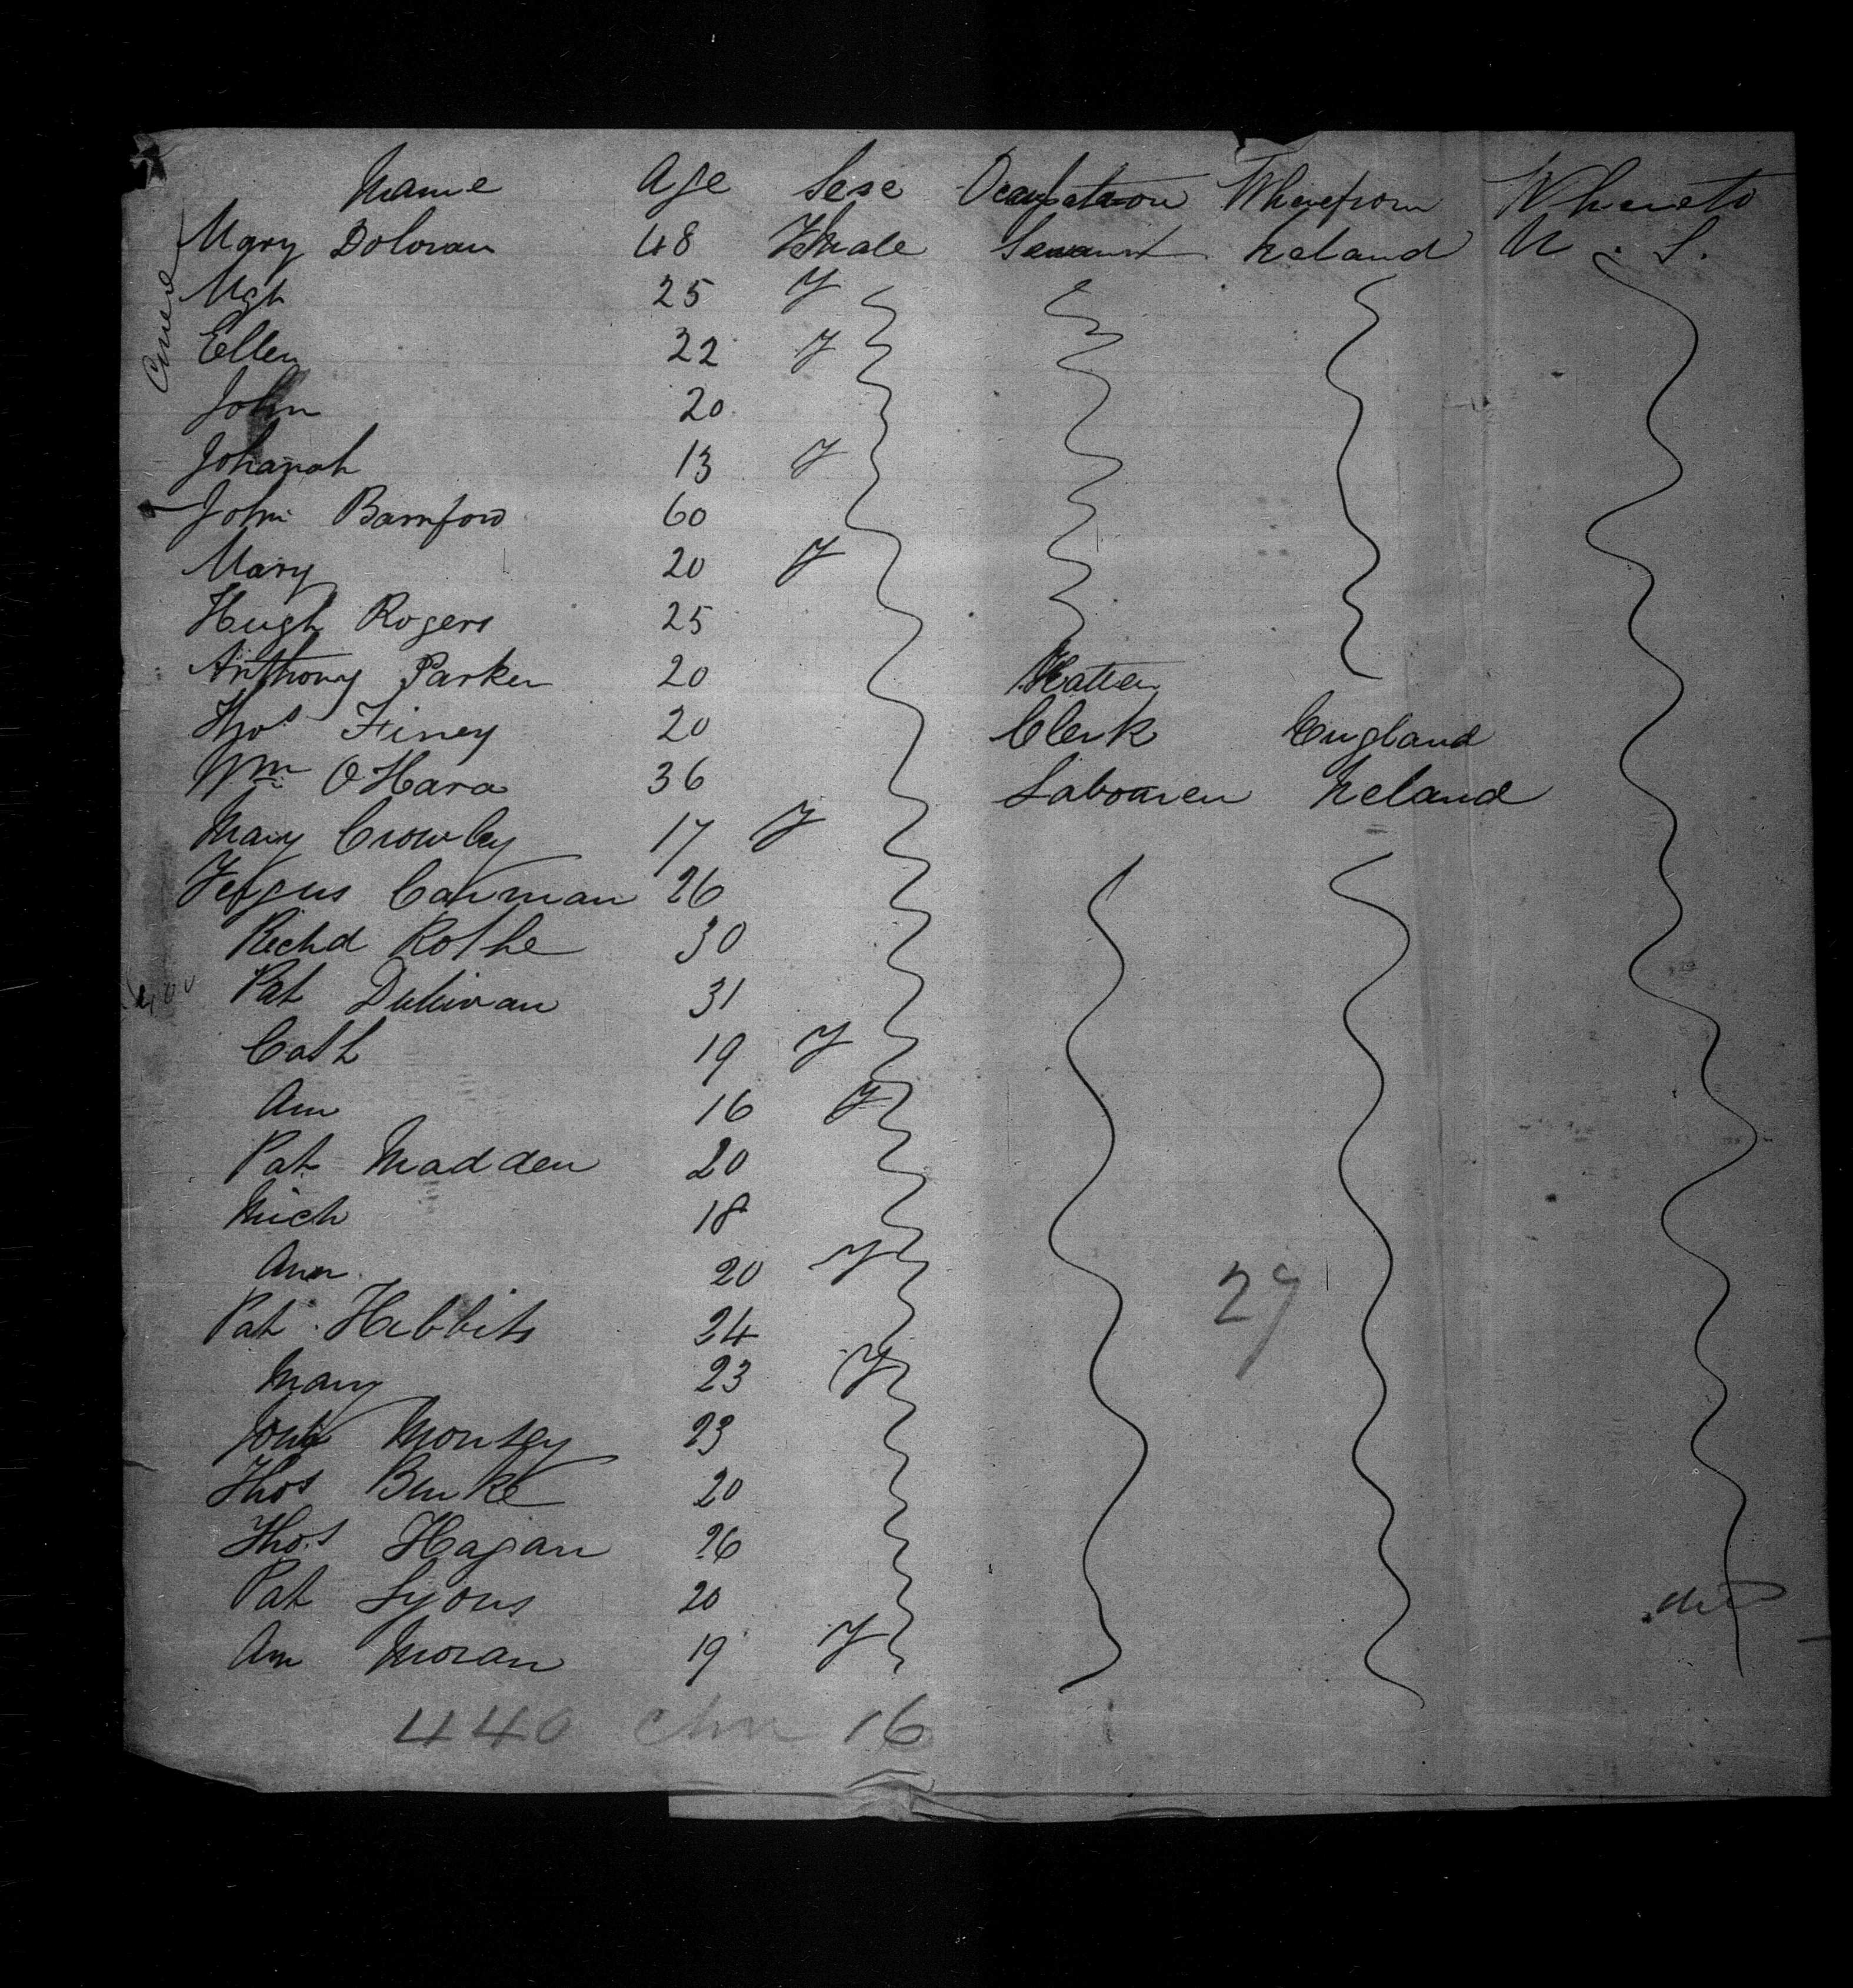 Name Age Sexe Occupation Wherefrom Whereto
Mary Doloran 48 Female Servant Ireland U. S.
Mgt 25 F
Ellen 22 F
John 20
Johanah 13 F
John Bamford 60
Mary 20 F
Hugh Rogers 25
Anthony Parker 20 Hatter
Thos Finey 20 Clerk England
Wm O Hara 36 Labourer Ireland
Mary Crowley 17 F
Fergus 26
Richd Rothe 30
Pat 31
Cath 19 F
Ann 16 F
Pat Madden 20
Mich 18
Ann 20 F
27
Pat Hebbits 24
Mary 23 F
John 23
Thos Burke 20
Thos Hagan 26
Pat Lyons 20
Ann Moran 19 F
440 16